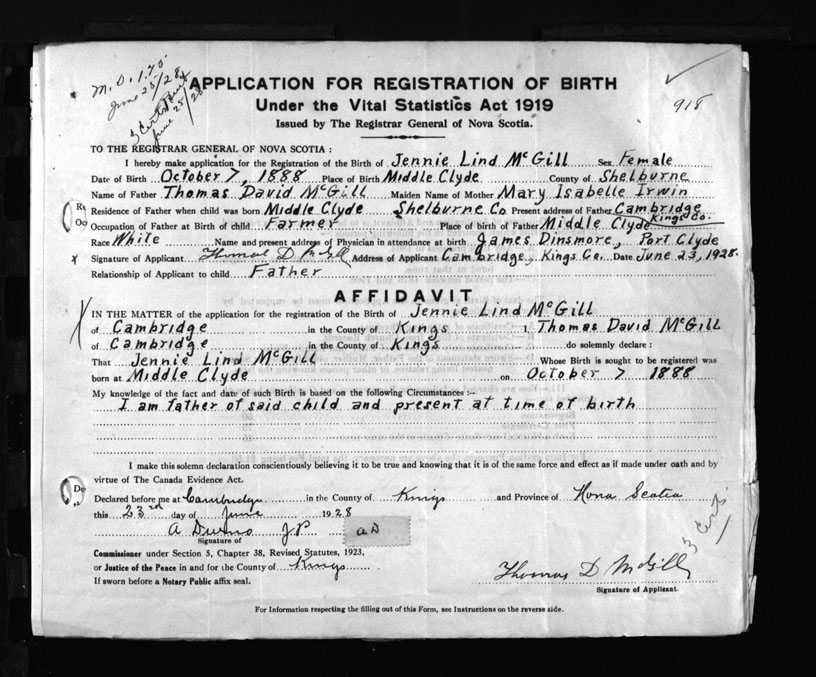 M.O. 1.70
June 25/28
3 Certs
June 25/28
918
APPLICATION FOR REGISTRATION OF BIRTH
Under the Vital Statistics Act 1919
Issued by The Registrar General of Nova Scotia.
TO THE REGISTRAR GENERAL OF NOVA SCOTIA :
I hereby make application for the Registration of the Birth of Jennie Lind McGill Sex Female
Date of Birth October 7, 1888 Place of Birth Middle Clyde County of Shelburne
Name of Father Thomas David McGill Maiden Name of Mother Mary Isabelle Irwin
Residence of Father when child was born Middle Clyde Shelburne Co Present address of Father Cambridge Kings Co.
Occupation of Father at Birth of child Farmer Place of birth of Father Middle Clyde
Race White Name and present address of Physician in attendance at birth James Dinsmore, Port Clyde
x Signature of Applicant Thomas D McGill Address of Applicant Cambridge, Kings Co. Date June 23, 1928.
Relationship of Applicant to child Father
AFFIDAVIT
IN THE MATTER of the application for the registration of the Birth of Jennie Lind McGill
of Cambridge in the County of Kings I, Thomas David McGill
of Cambridge in the County of Kings do solemnly declare :
That Jennie Lind McGill Whose Birth is sought to be registered was
born at Middle Clyde on October 7 1888
My knowledge of the fact and date of such Birth is based on the following Circumstances :-
I am father of said child and present at time of birth
I make this solemn declaration conscientiously believing it to be true and knowing that it is of the same force and effect as if made under oath and by
virtue of The Canada Evidence Act.
De
Declared before me at Cambridge in the County of Kings and Province of Nova Scotia
this 23rd day of June 1928
A J P
a D
Signature of
Commissioner under Section 5, Chapter 38, Revised Statutes, 1923,
or Justice of the Peace in and for the County of Kings
If sworn before a Notary Public affix seal.
3 Certs
Thomas D McGill
Signature of Applicant.
For Information respecting the filling out of this Form, see Instructions on the reverse side.